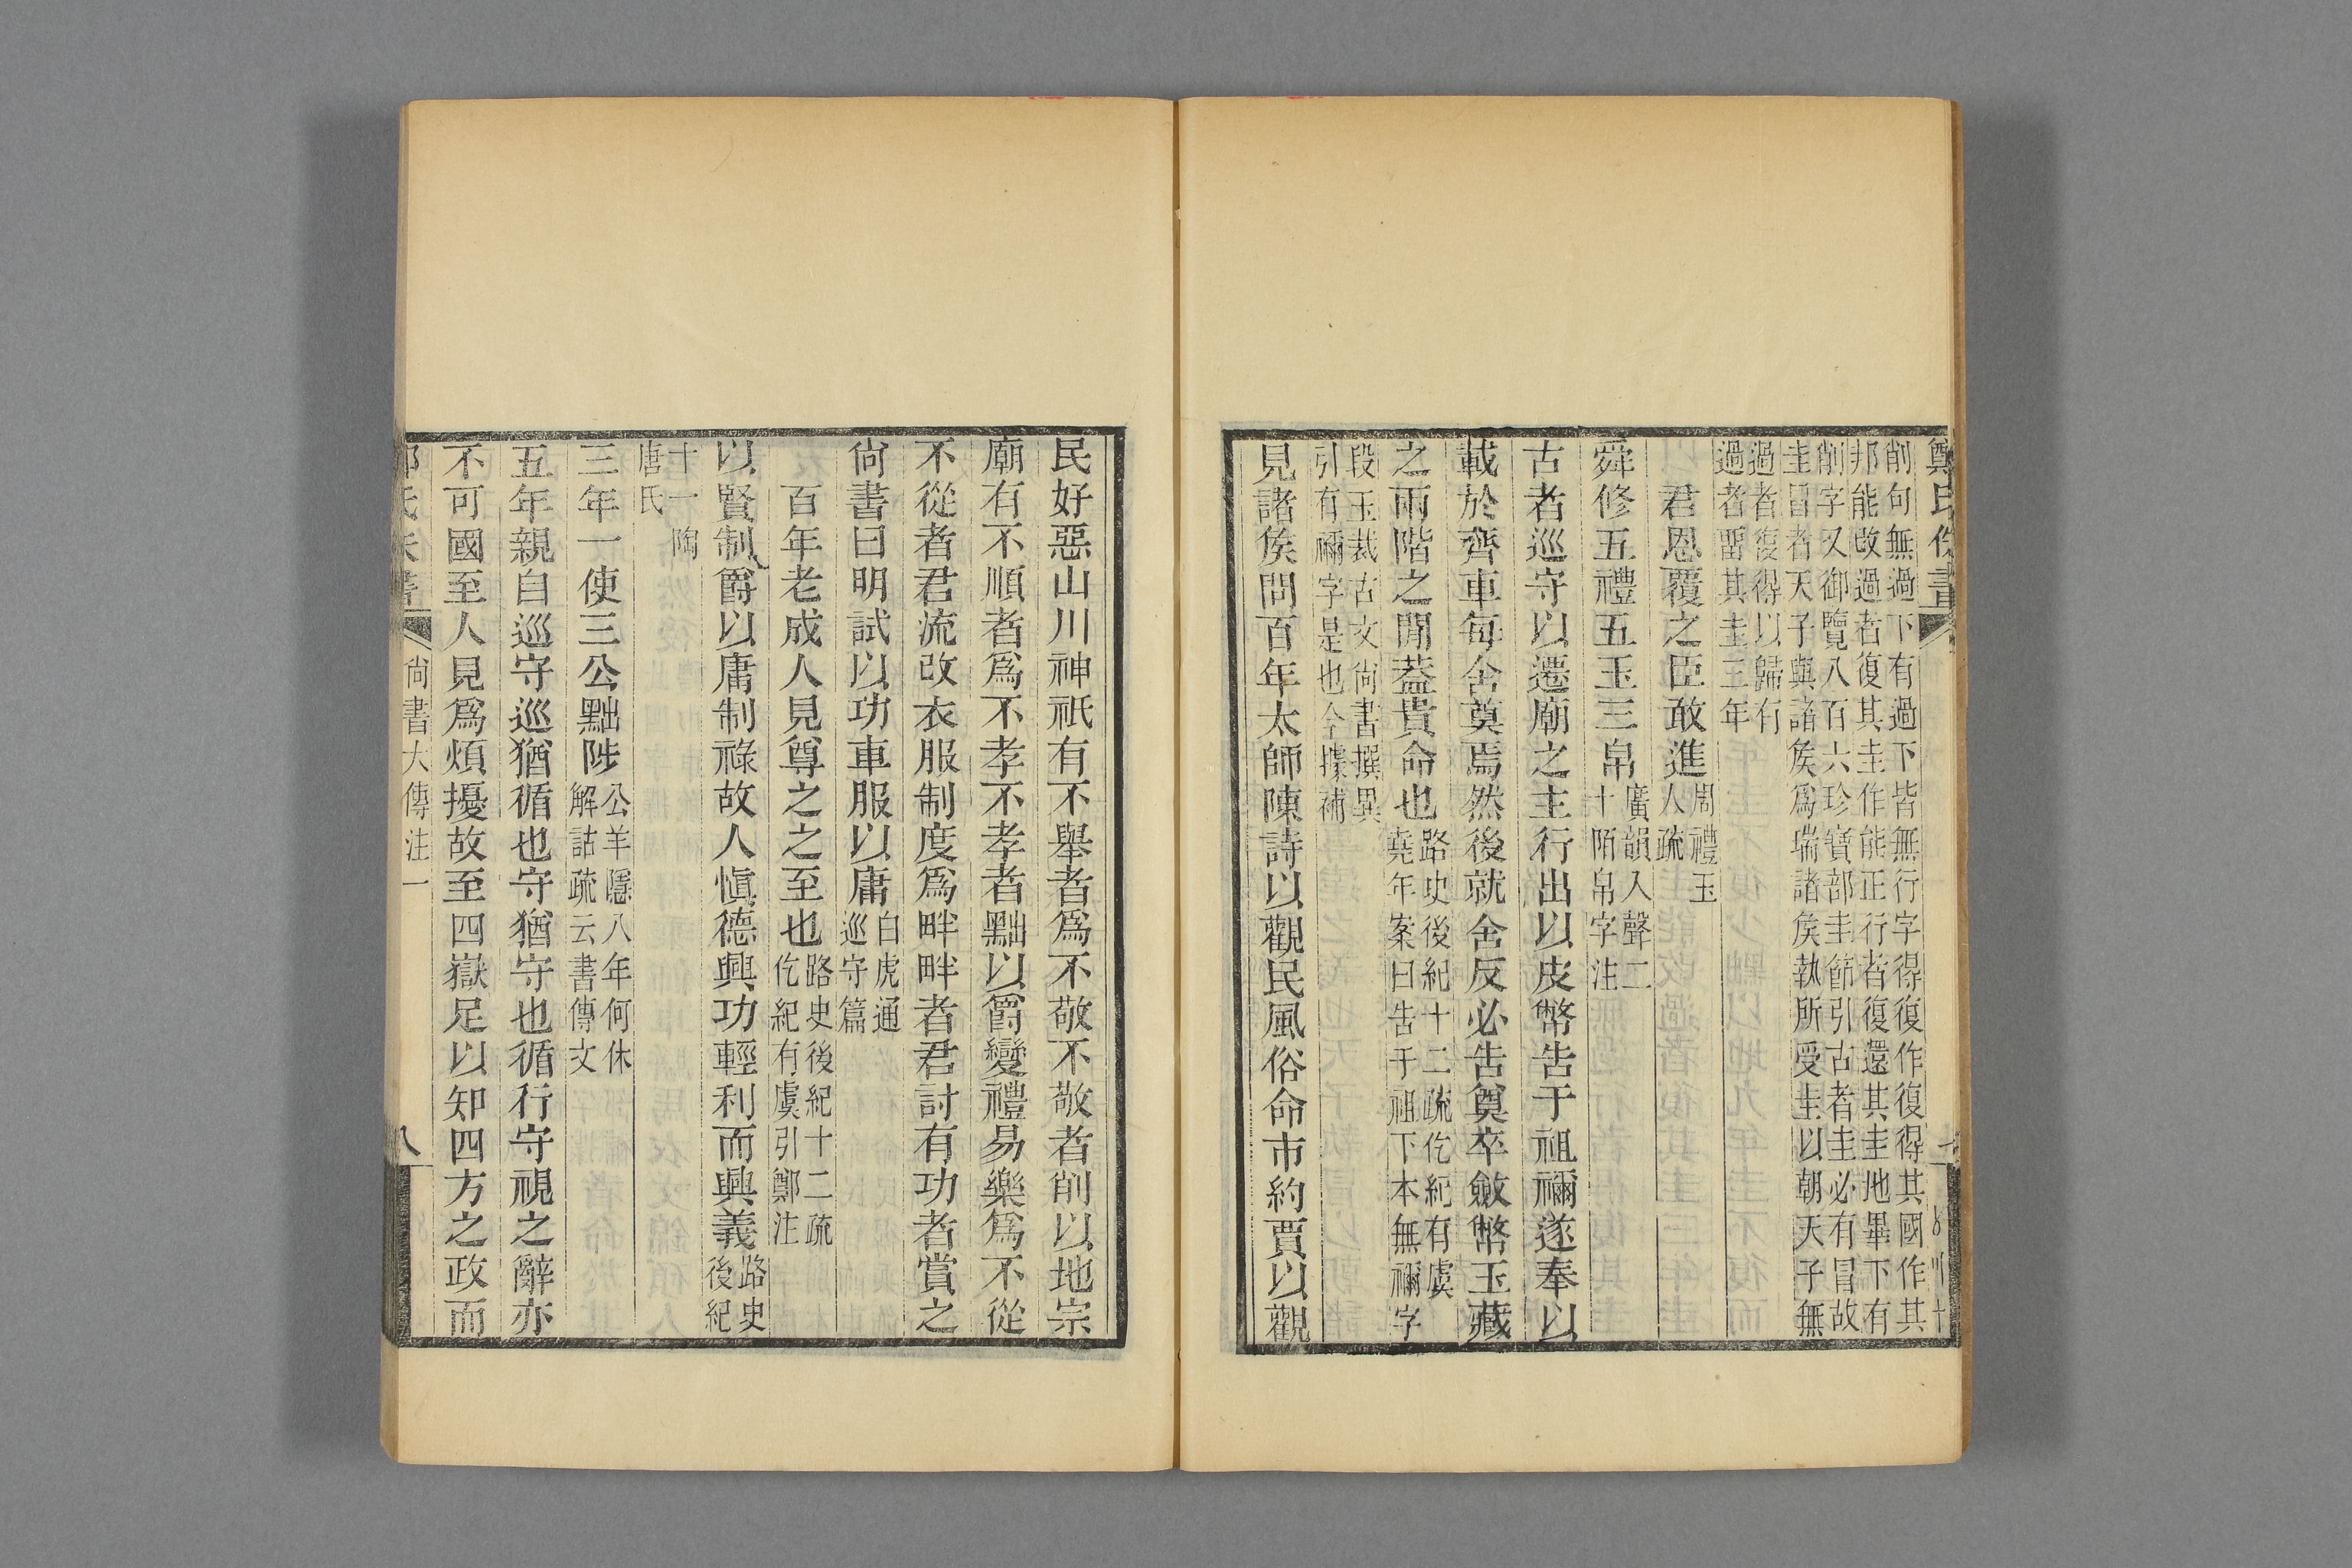 鄭氏佚書
削句無過下有過下皆無行字得復作復得其國作其
邦能改過者復其圭作能正行者復還其圭地畢下有
削字又御覽八百六珍寶部圭節引古者圭必有冒故
圭冒者天子與諸矦爲瑞諸矦執所受圭以朝天子無
過者復得以歸有
過者畱其圭三年
君恩覆之臣敢進
周禮玉
人疏
舜修五禮五玉三帛
廣韻入聲二
十陌帛字注
古者巡守以遷廟之主行出以皮幣告于祖禰遂奉以
載於齊車每舍奠焉然後就舍反必告奠卒斂幣玉藏
之兩階之閒蓋貴命也
路史後紀十二疏仡紀有虞
堯年案曰告于祖下本無禰字
段玉裁古文尚書撰異
引有禰字是也今據補
見諸矦問百年太師陳詩以觀民風俗命市約賈以觀
民好惡山川神祇有不舉者爲不敬不敬者削以地宗
廟有不順者爲不孝不孝者黜以爵變禮易樂爲不從
不從者君流改衣服制度爲畔畔者君討有功者賞之
尚書曰明試以功車服以庸
白虎通
巡守篇
百年老成人見尊之之至也
路史後紀十二疏
仡紀有虞引鄭注
以賢制爵以庸制祿故人愼德興功輕利而興義
路史
後紀
十一陶
唐氏
三年一使三公黜陟
公羊隱八年何休
解詁疏云書傳文
五年親自巡守巡猶循也守猶守也循行守視之辭亦
不可國至人見爲煩擾故至四嶽足以知四方之政而
尚書大傳注一
八